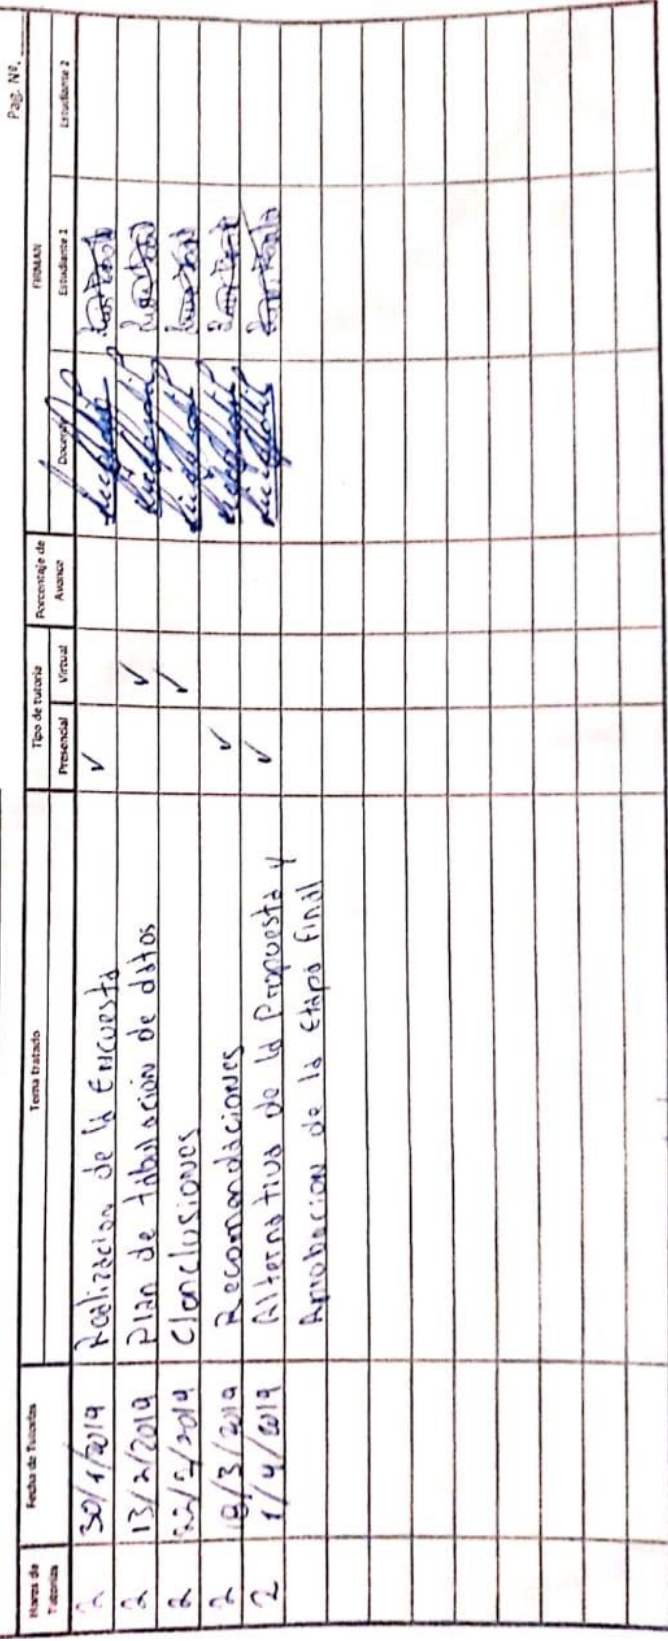 Pag. Nº.
Horas de Tutorías Fecha de Tutorías Tema tratado Tipo de tutoría Porcentaje de Avance FIRMAN
Presencial Virtual Docente Estudiante 1 Estudiante 2
2 30/1/2019 Realizacion de la Encuesta ✓
2 13/2/2019 Plan de tabulación de datos ✓
2 /2/2019 Clonclusiones ✓
2 18/3/2019 Recomendaciones ✓
2 1/4/2019 Alternativa de la Propuesta y ✓
Aprobacion de la Etapa final